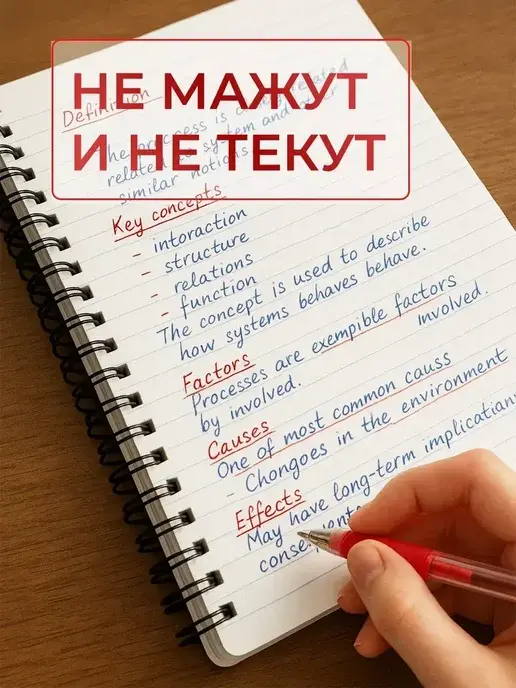 НЕ МАЖУТ
И НЕ ТЕКУТ
Definition
The process is related
related to system and
similar notions
Key concepts
- intoraction
- structure
- relations
- function
The concept is used to describe
how systems behaves behave.
Factors
Processes are exempible factors
by involved. involved.
Causes
One of most common causs
- Chongoes in the environment
Effects
May have long-term implications